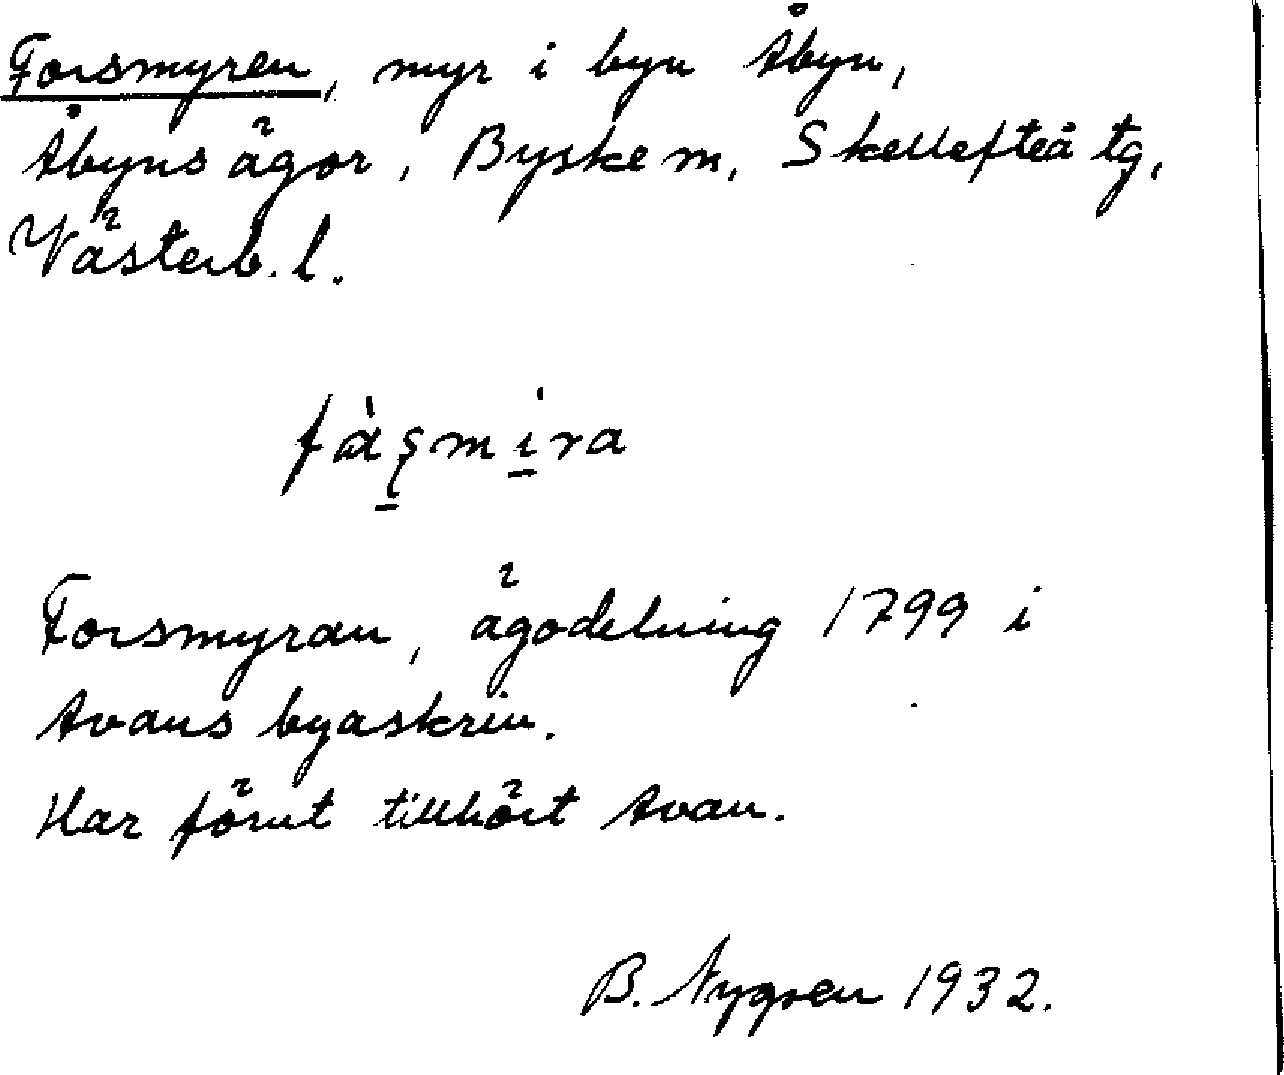 Forsmyren, myr i byn Åbyn,
Åbyns ägor, Byske m, Skellefteå tg,
Västerb. l.
Forsmyran, ägodelning 1799 i
Avans byaskrin.
Har förut tillhört Avan.
B. Nygren 1932.